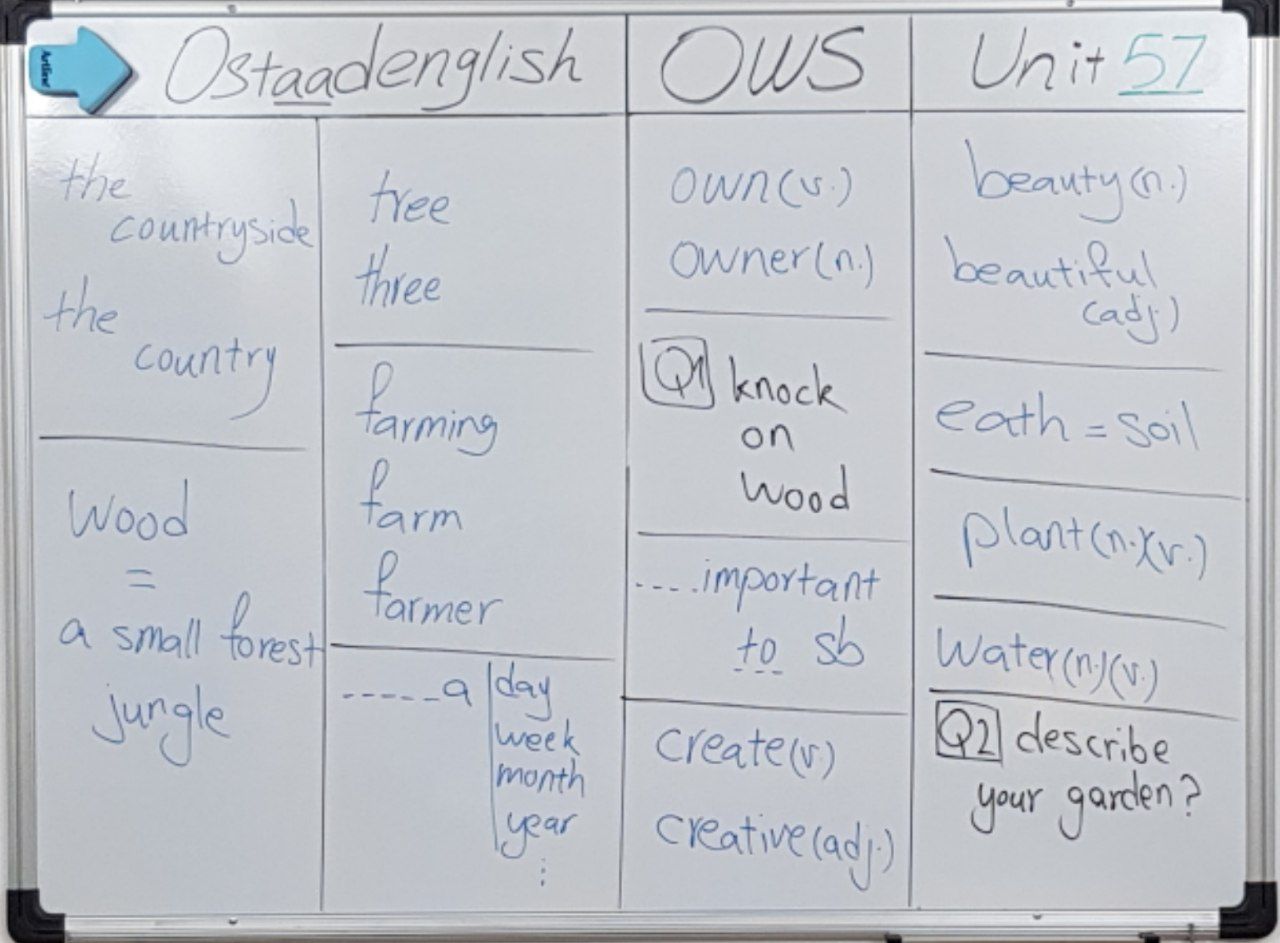 Artline
Ostaadenglish
OWS
Unit 57
the
countryside
the
country
wood
=
a small forest
jungle
tree
three
farming
farm
farmer
-----a
day
week
month
year
⋮
own(v.)
owner(n.)
Q1 knock
on
wood
....important
to sb
create(v.)
creative(adj.)
beauty(n.)
beautiful
(adj.)
eath = soil
plant(n.)(v.)
water(n.)(v.)
Q2 describe
your garden?